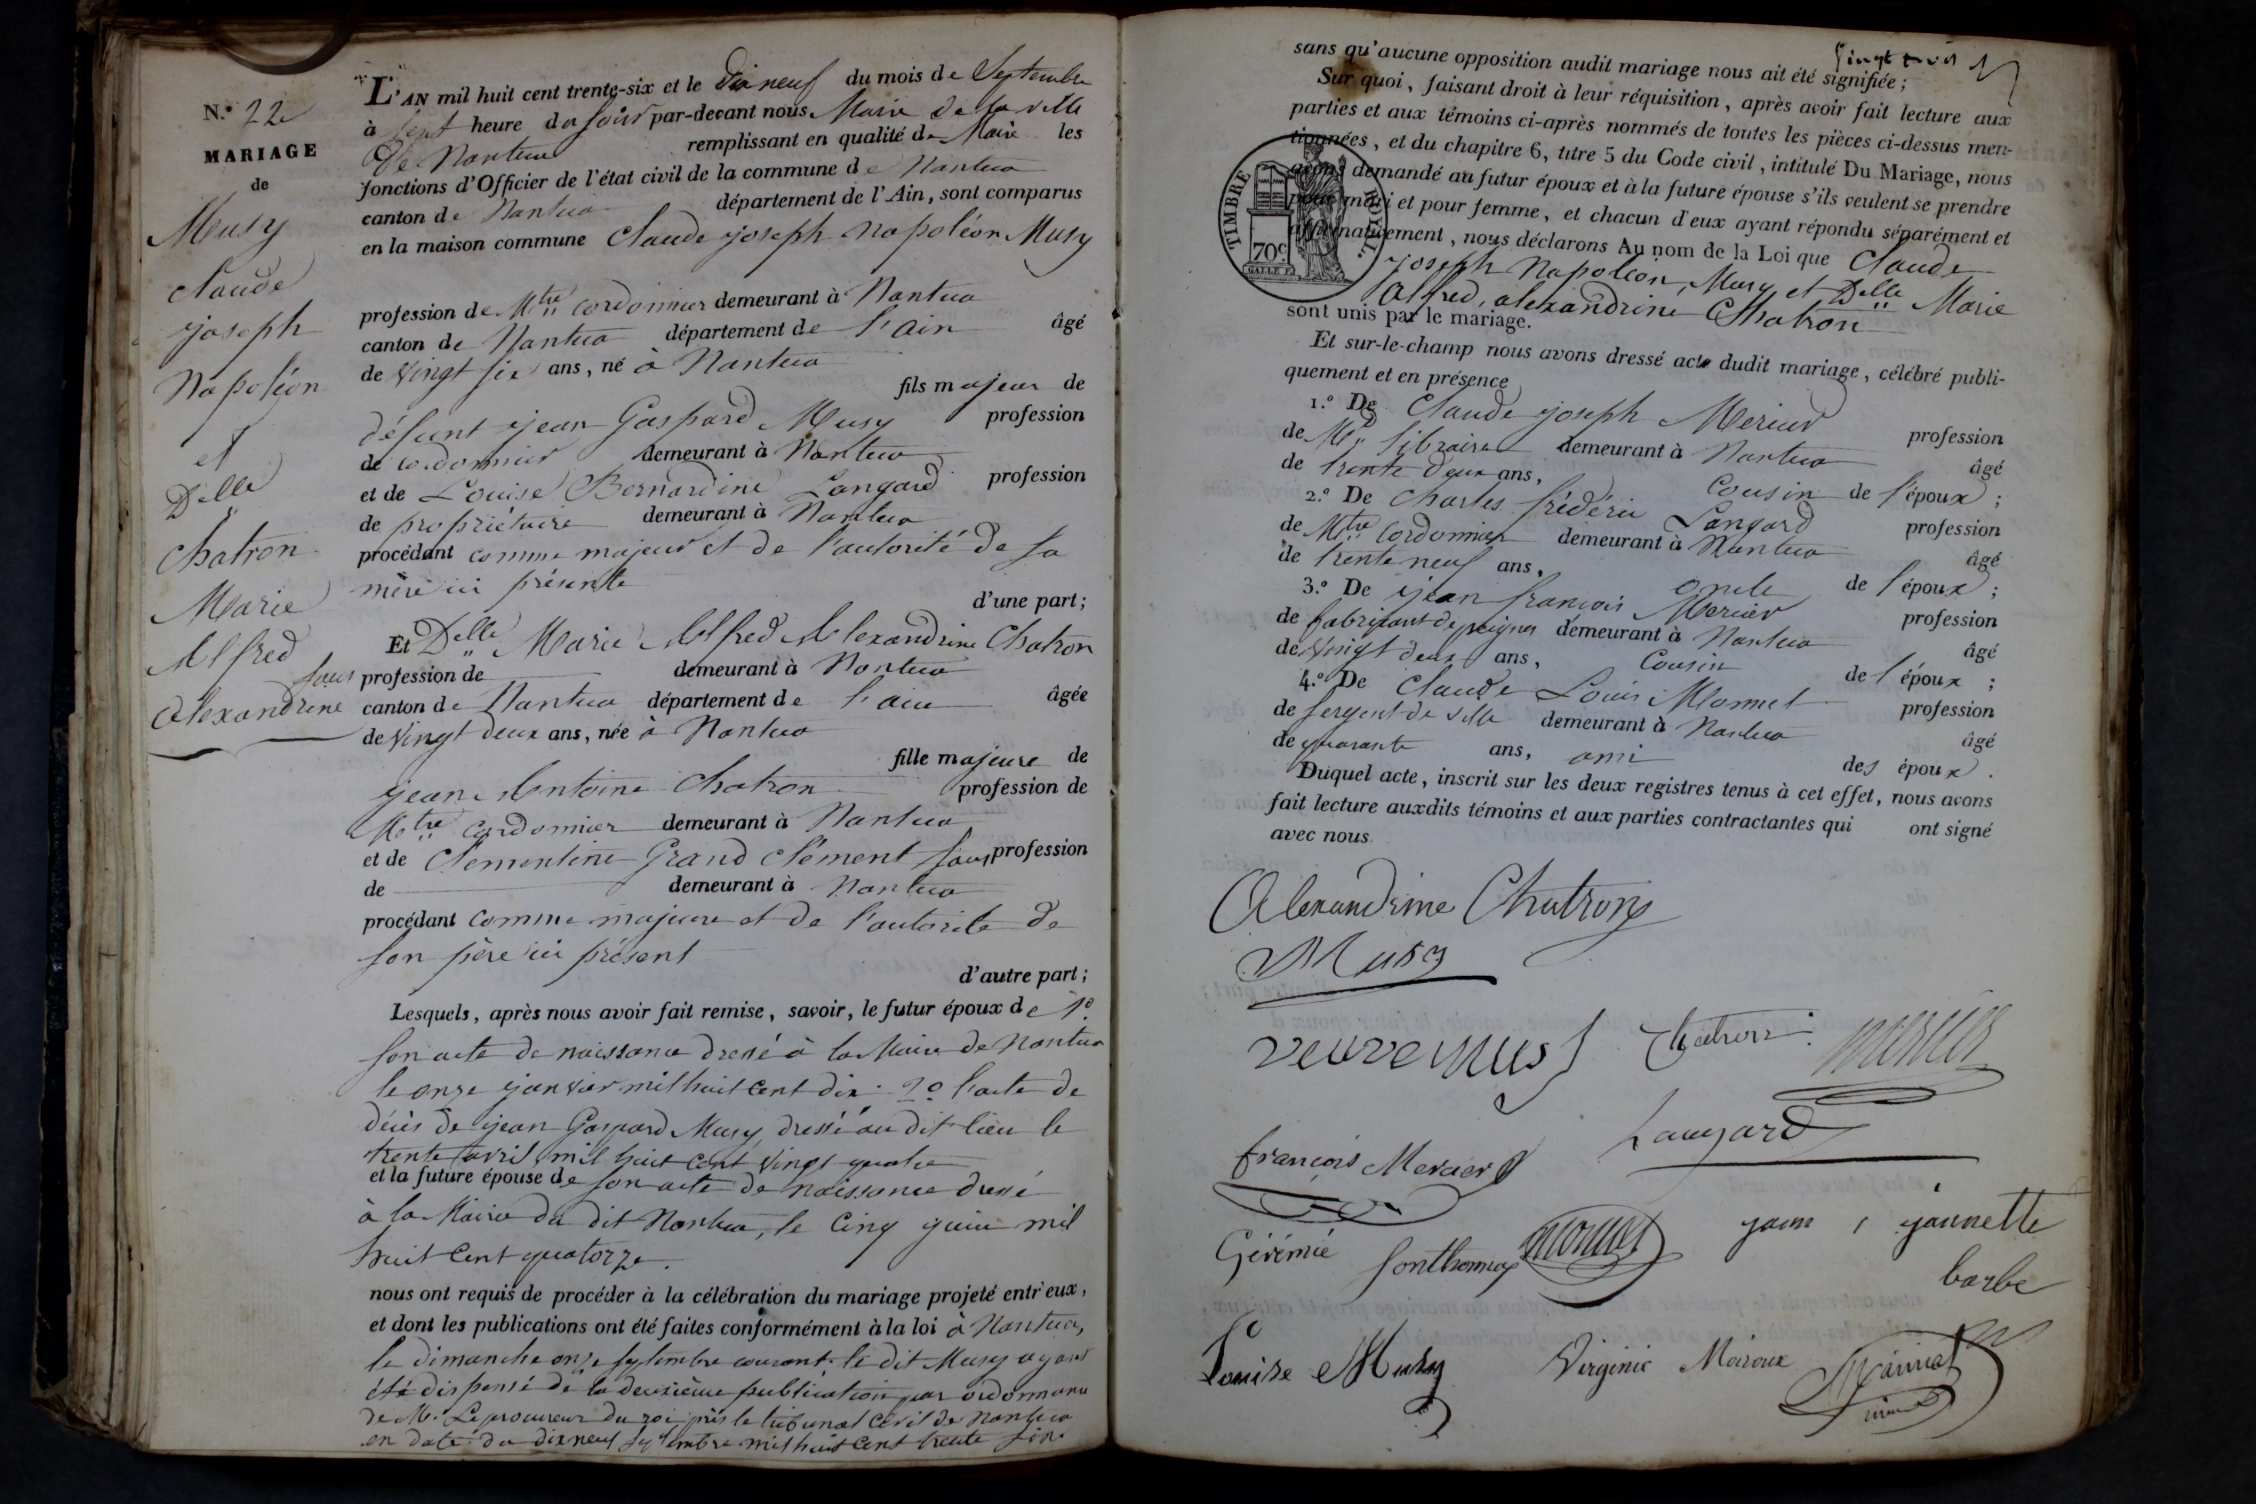 N.º 22
MARIAGE
de
Musy
Claude
joseph
Napoléon
et
Delle
Chatron
Marie
Alfred
Alexandrine
L'AN mil huit cent trente-six et le dix neuf du mois de Septembre
à Sept heure du soir par-devant nous Maire de la ville
de Nantua remplissant en qualité de Maire les
fonctions d'Officier de l'état civil de la commune de Nantua
canton de Nantua département de l'Ain, sont comparus
en la maison commune Claude joseph Napoléon Musy
profession de Mtre Cordonnier demeurant à Nantua
canton de Nantua département de l'ain âgé
de Vingt six ans, né à Nantua
fils majeur de
défunt jean Gaspard Musy profession
de cordonnier demeurant à Nantua
et de Louise Bernardine Langard profession
de propriétaire demeurant à Nantua
procédant comme majeur et de l'autorité de sa
mère ici présente
d'une part;
Et Delle Marie Alfred Alexandrine Chatron
sans profession de demeurant à Nantua
canton de Nantua département de l'ain âgée
de Vingt deux ans, née à Nantua
fille majeure de
jean Antoine Chatron profession de
Mtre Cordonnier demeurant à Nantua
et de Clémentine Grand Clément sans profession
de demeurant à Nantua
procédant comme majeure et de l'autorité de
son père ici présent
d'autre part;
Lesquels, après nous avoir fait remise, savoir, le futur époux de 1º
son acte de naissance dressé à la Mairie de Nantua
le onze janvier mil huit cent dix. 2º l'acte de
décès de jean Gaspard Musy, dressé au dit lieu le
trente avril mil huit cent vingt quatre
et la future épouse de son acte de naissance dressé
à la Mairie du dit Nantua, le Cinq juin mil
huit Cent quatorze.
nous ont requis de procéder à la célébration du mariage projeté entr'eux,
et dont les publications ont été faites conformément à la loi à Nantua,
le dimanche onze septembre courant. le dit Musy ayant
été dispensé de la deuxième publication par ordonnance
de M. Le procureur du roi près le tribunal Civil de Nantua
en date du dix neuf septembre mil huit Cent trente six.
Vingt trois
sans qu'aucune opposition audit mariage nous ait été signifiée;
Sur quoi, faisant droit à leur réquisition, après avoir fait lecture aux
parties et aux témoins ci-après nommés de toutes les pièces ci-dessus men-
tionnées, et du chapitre 6, titre 5 du Code civil, intitulé Du Mariage, nous
avons demandé au futur époux et à la future épouse s'ils veulent se prendre
pour mari et pour femme, et chacun d'eux ayant répondu séparément et
affirmativement, nous déclarons Au nom de la Loi que Claude
joseph Napoléon, Musy et Delle Marie
Alfred, alexandrine Chatron
sont unis par le mariage.
TIMBRE ROYAL.
70c
GALLE F.
Et sur-le-champ nous avons dressé acte dudit mariage, célébré publi-
quement et en présence
1.º De Claude joseph Mercier profession
de Md libraire demeurant à Nantua âgé
de trente deux ans, Cousin de l'époux;
2.º De Charles frédéric Langard profession
de Mtre Cordonnier demeurant à Nantua âgé
de trente neuf ans, oncle de l'époux;
3.º De jean françois Mercier profession
de fabricant de peignes demeurant à Nantua âgé
de Vingt deux ans, Cousin de l'époux;
4.º De Claude Louis Monnet profession
de Sergent de ville demeurant à Nantua âgé
de quarante ans, ami des époux.
Duquel acte, inscrit sur les deux registres tenus à cet effet, nous avons
fait lecture auxdits témoins et aux parties contractantes qui ont signé
avec nous
Alexandrine Chatron
Musy
veuve Musy Chatron Mercier
Langard
françois Mercier
Gérémie Sonthonnax Monnet jeannette
barbe
Louise Musy Virginie Moiroux